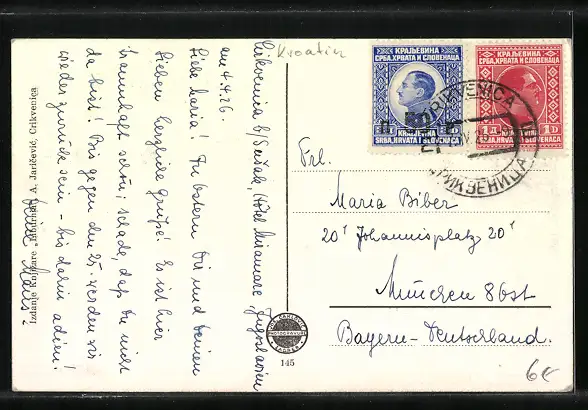 Kroatien
Crikvenica b/Sušak, (Hotel Miramare, Jugoslavien
am 4.4.26.
Liebe Maria! Zu Ostern Dir und Deinen
Lieben herzliche Grüße! Es ist hier
traumhaft schön; schade, daß Du nicht
da bist! Bis gegen den 25. werden wir
wieder zurück sein - bis dahin adieu!
Deine
Izdanje Knjižare A. Jaričević, Crikvenica
145
КРАЉЕВИНА
СРБА, ХРВАТА И СЛОВЕНАЦА
KRALJEVINA
SRBA, HRVATA I SLOVENACA
КРАЉЕВИНА
СРБА, ХРВАТА И СЛОВЕНАЦА
1 Д
1 D
KRALJEVINA
SRBA, HRVATA I SLOVENACA
CRIKVENICA
ЦРИКВЕНИЦА
Frl.
Maria Biber
20 I Johannisplatz 20 I
München 8 Ost
Bayern - Deutschland.
6€